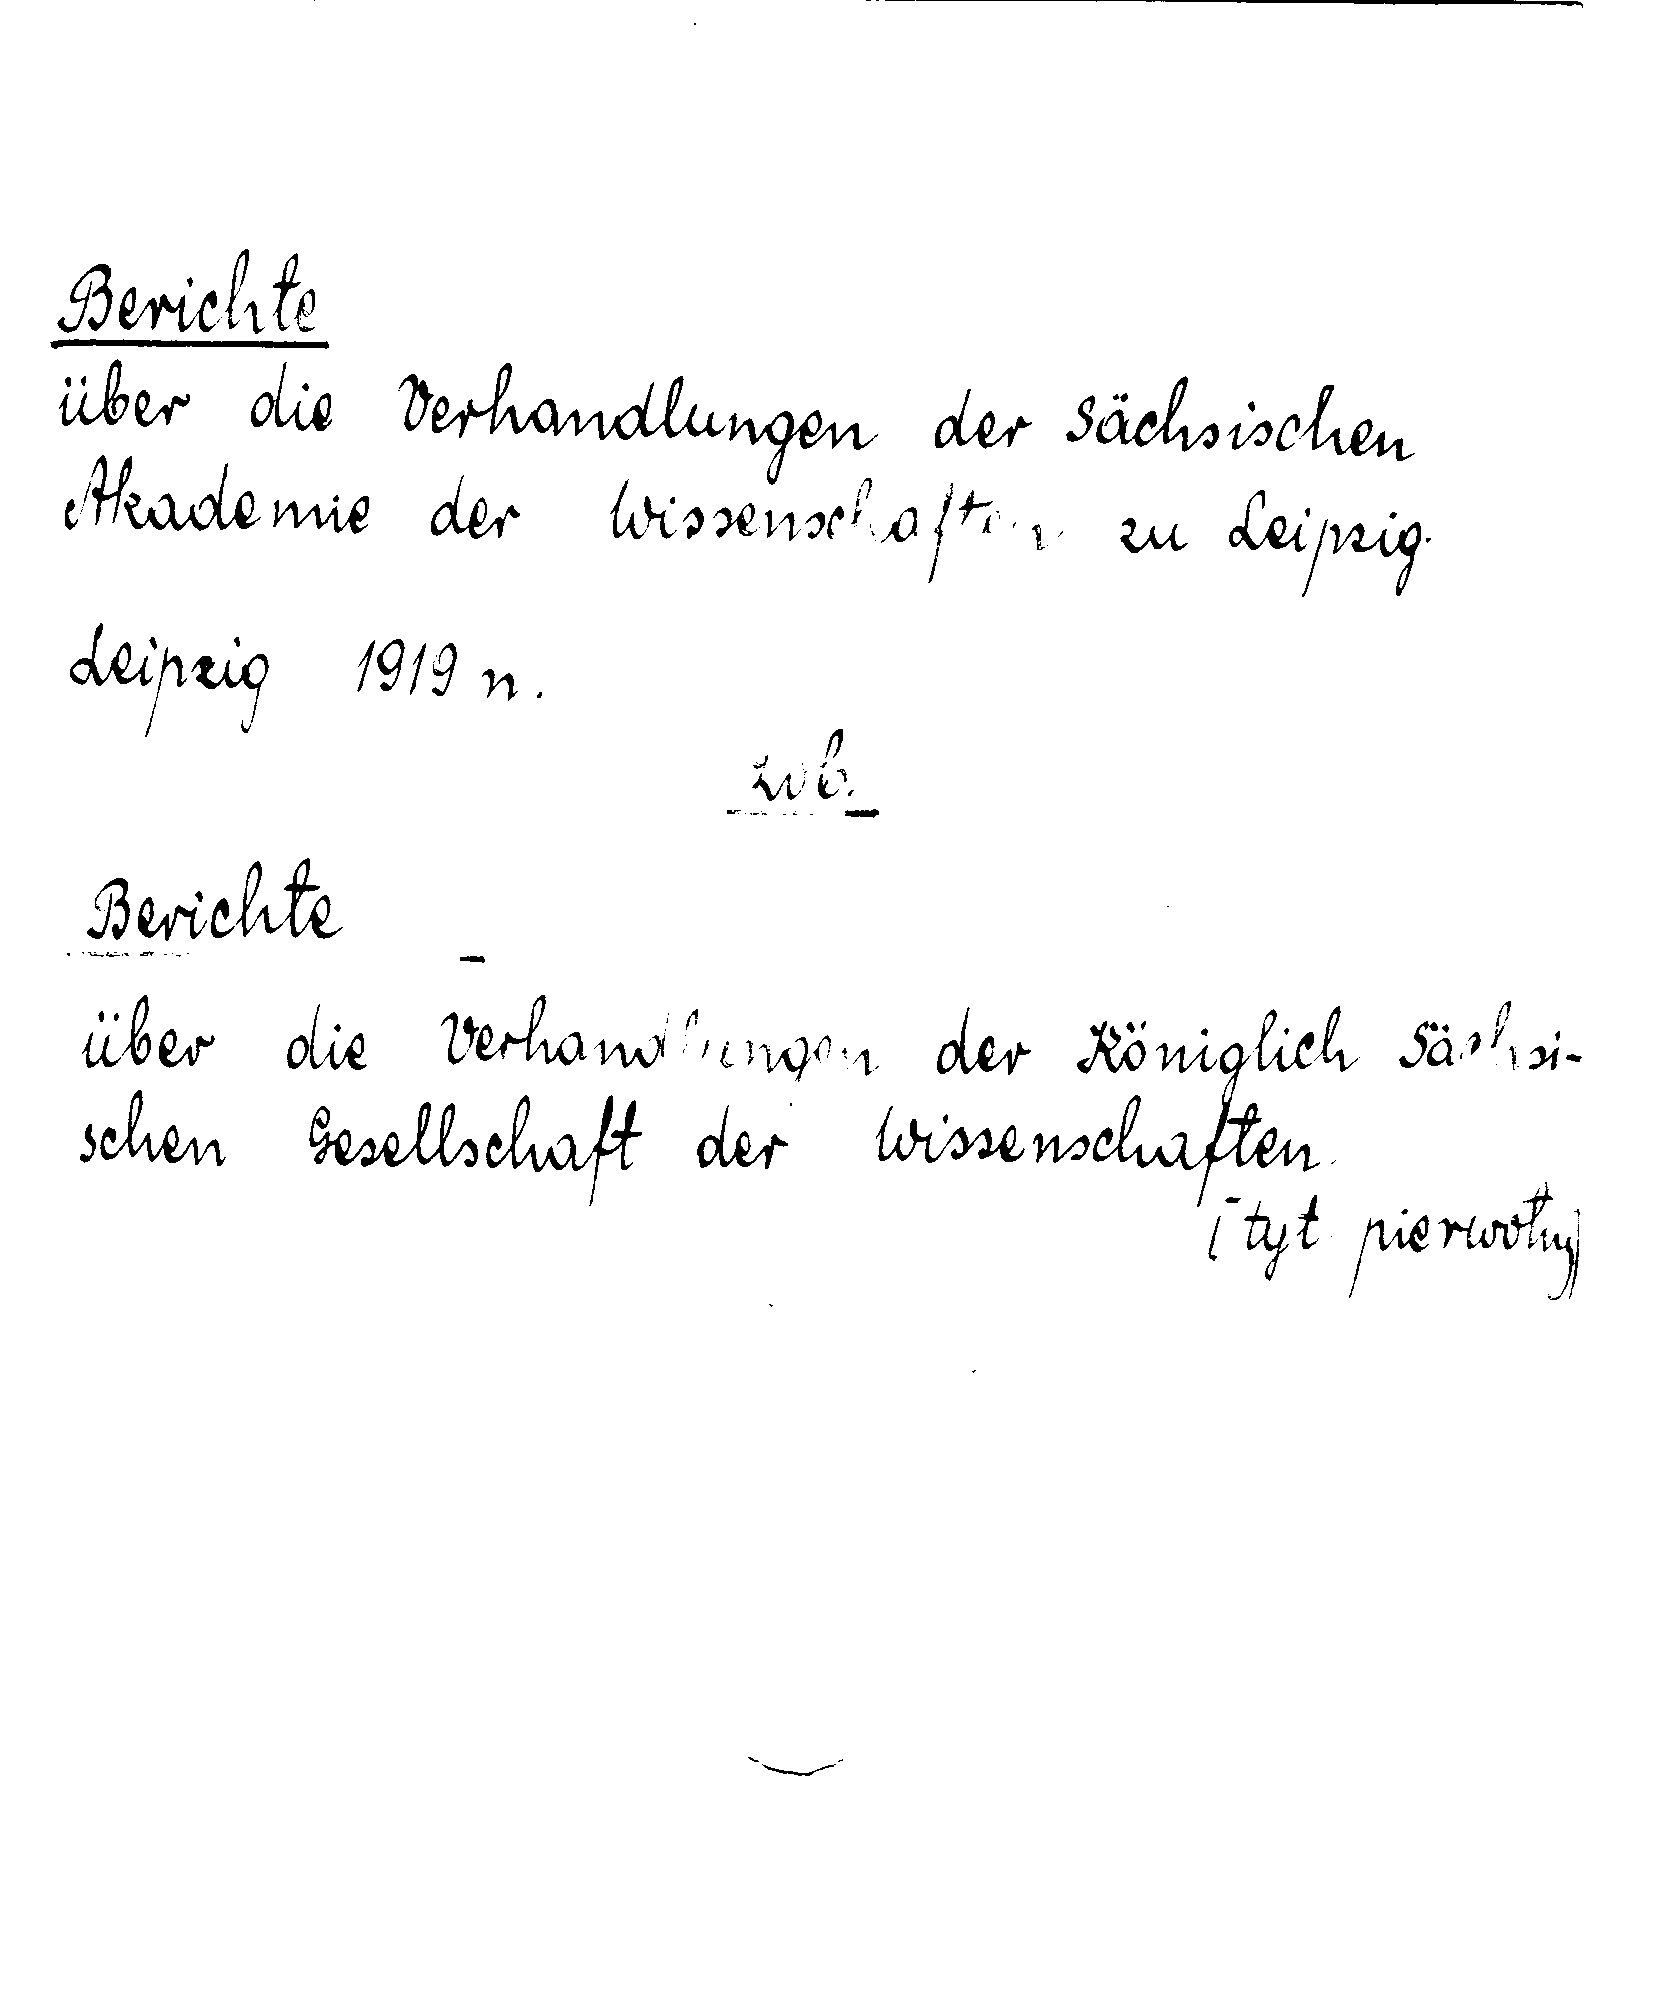 Berichte
über die Verhandlungen der Sächsischen
Akademie der Wissenschaften zu Leipzig.
Leipzig 1919 n.
zob.
Berichte
über die Verhandlungen der Königlich Sächsi-
schen Gesellschaft der Wissenschaften.
(tyt pierwotny)